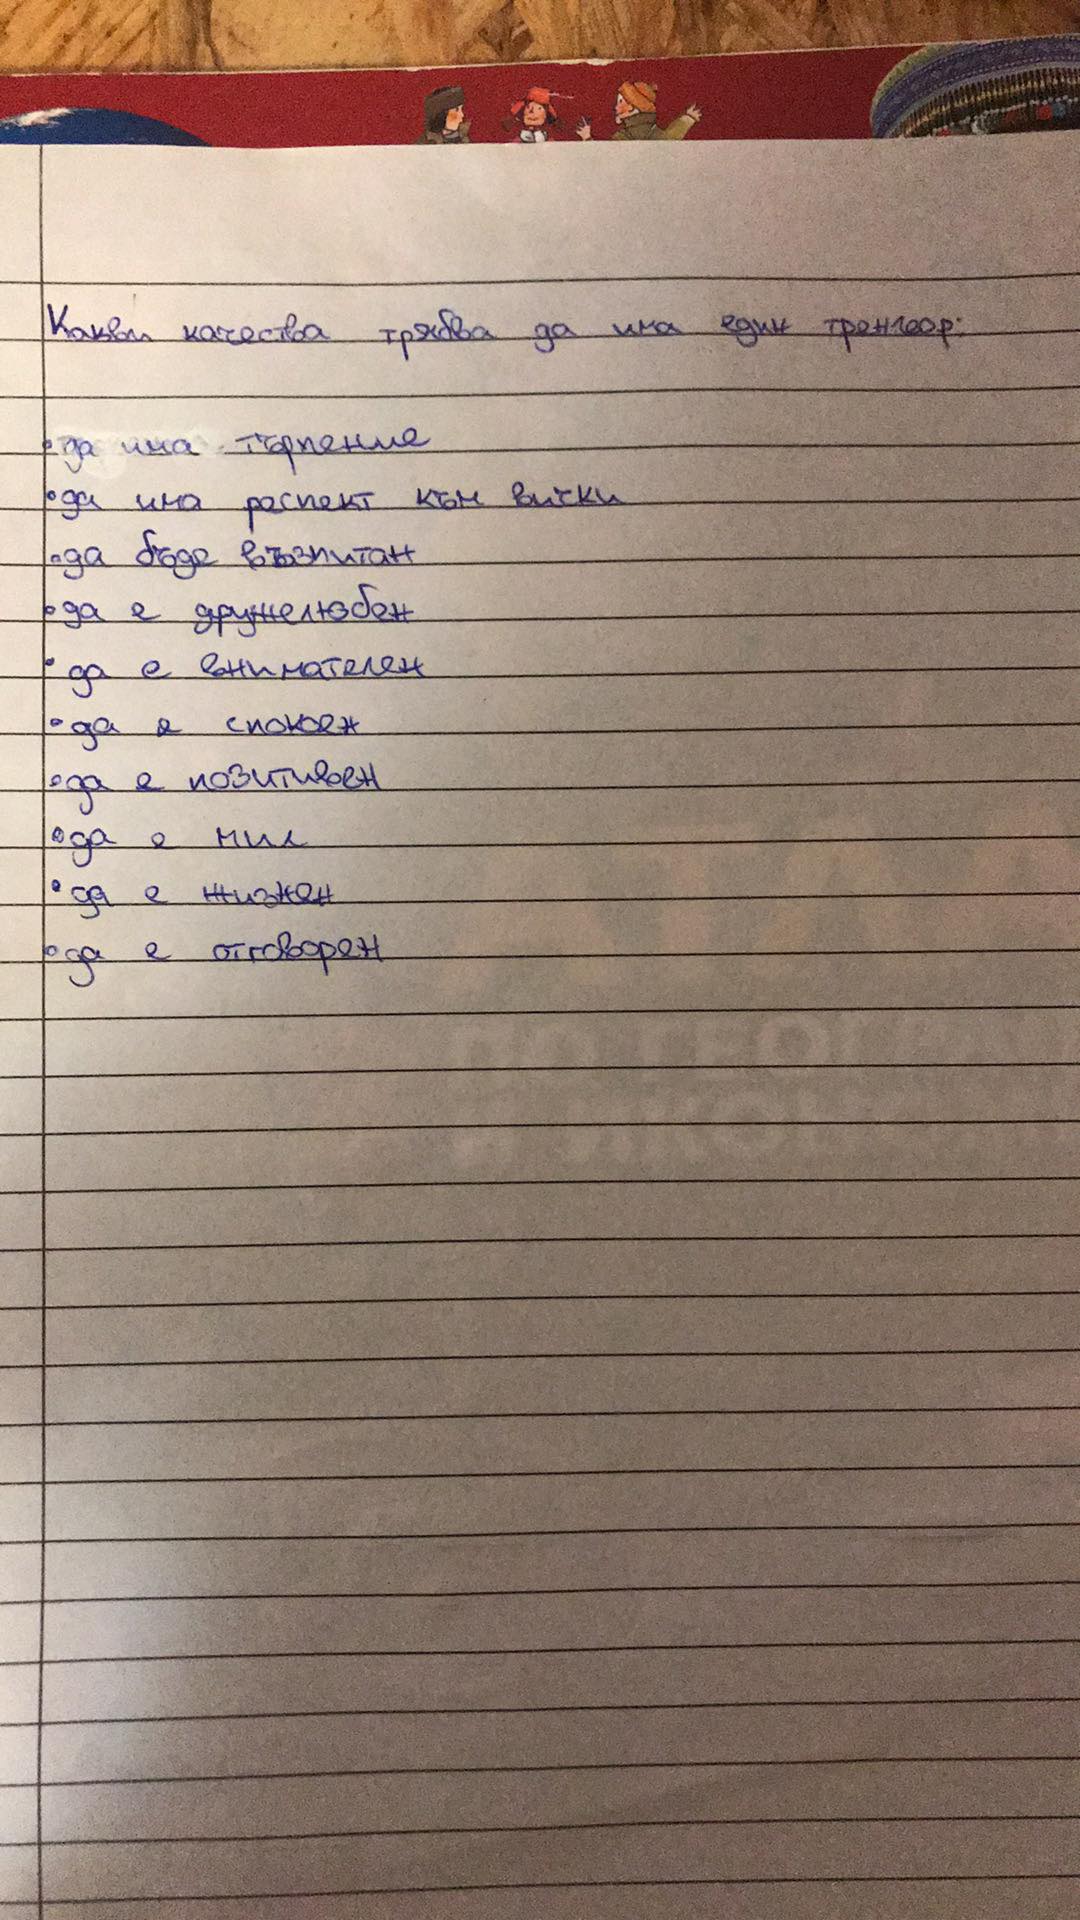 Какви качества трябва да има един тренгеор:
•да има търпение
•да има распект към вички
•да бъде възпитан
•да е дружелюбен
•да е внимателен
•да е спокоен
•да е позитивен
•да е мил
•да е жизнен
•да е отговорен